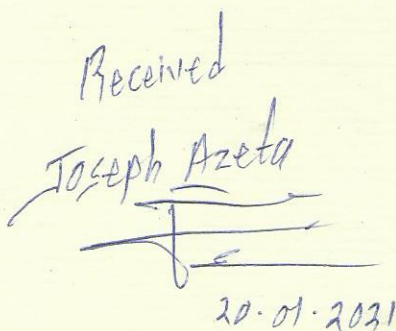 Received
Joseph Azeta
20.01.2021